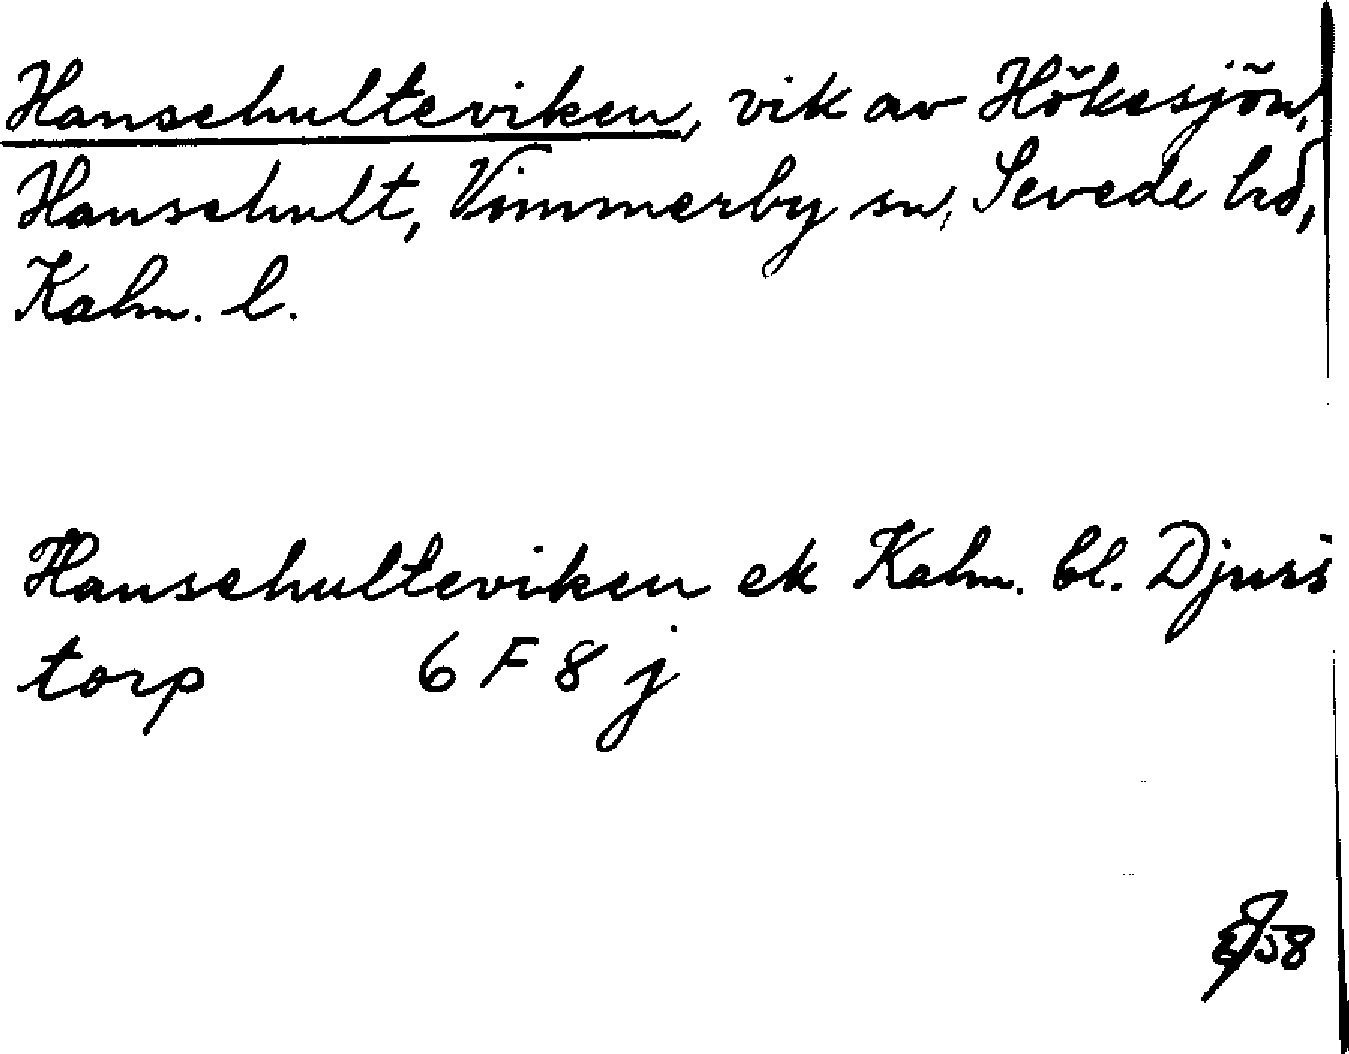 Hanschulteviken, vik av Hökesjön,
Hanschult, Vimmerby sn, Sevede hd,
Kalm. l.
Hanschulteviken ek Kalm. bl. Djurs
torp 6 F 8 j
58